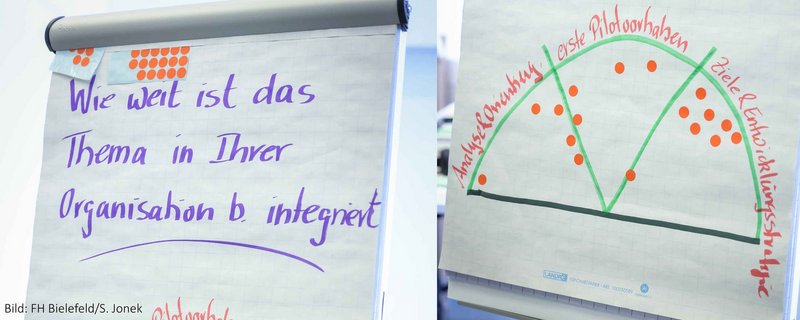 Wie weit ist das
Thema in Ihrer
Organisation b. integriert
Pilotvorhaben
Bild: FH Bielefeld/S. Jonek
Analyse & Orientierung
erste Pilotvorhaben
Ziele & Entwicklungsstrategie
LANDRÉ